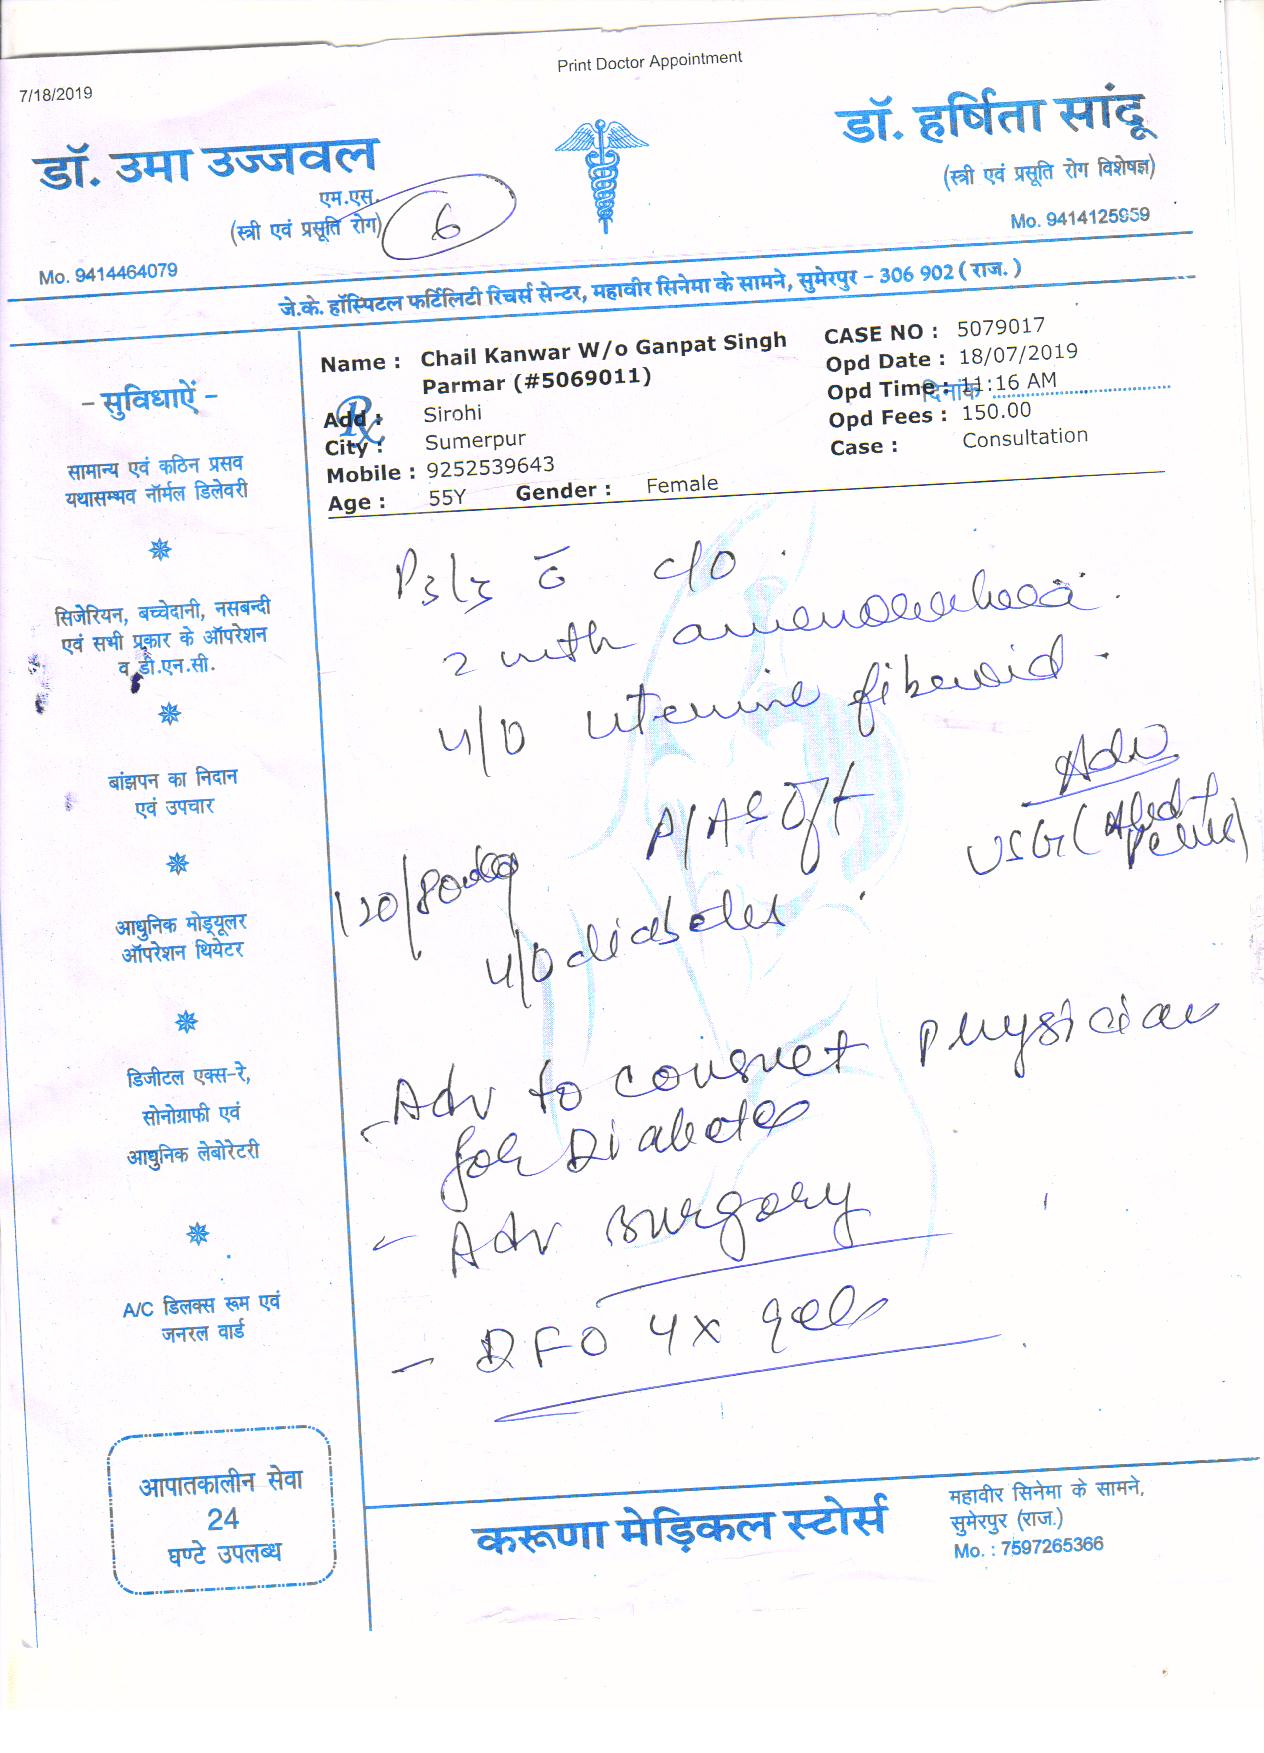 Print Doctor Appointment
7/18/2019
डॉ. उमा उज्जवल
एम.एस.
(स्त्री एवं प्रसूति रोग)
Mo. 9414464079
6
डॉ. हर्षिता सांदू
(स्त्री एवं प्रसूति रोग विशेषज्ञ)
Mo. 9414125959
जे.के. हॉस्पिटल फर्टिलिटी रिचर्स सेन्टर, महावीर सिनेमा के सामने, सुमेरपुर - 306 902 ( राज. )
- सुविधाऐं -
सामान्य एवं कठिन प्रसव
यथासम्भव नॉर्मल डिलेवरी
सिजेरियन, बच्चेदानी, नसबन्दी
एवं सभी प्रकार के ऑपरेशन
व डी.एन.सी.
बांझपन का निदान
एवं उपचार
आधुनिक मोड्यूलर
ऑपरेशन थियेटर
डिजीटल एक्स-रे,
सोनोग्राफी एवं
आधुनिक लेबोरेटरी
A/C डिलक्स रूम एवं
जनरल वार्ड
आपातकालीन सेवा
24
घण्टे उपलब्ध
Name : Chail Kanwar W/o Ganpat Singh
Parmar (#5069011)
Rx
Add : Sirohi
City : Sumerpur
Mobile : 9252539643
Age : 55Y Gender : Female
CASE NO : 5079017
Opd Date : 18/07/2019
दिनांक
Opd Time : 11:16 AM
Opd Fees : 150.00
Case : Consultation
P3L3 c̄ c/o
2 mth amenorrhoea.
uterine fibroid.
P/A Soft
Adv
USG (Abd +
Pelvis)
120/80
diabetes
- Adv to consult physician
for Diabetes
- Adv surgery
-
करूणा मेड़िकल स्टोर्स
महावीर सिनेमा के सामने,
सुमेरपुर (राज.)
Mo. : 7597265366